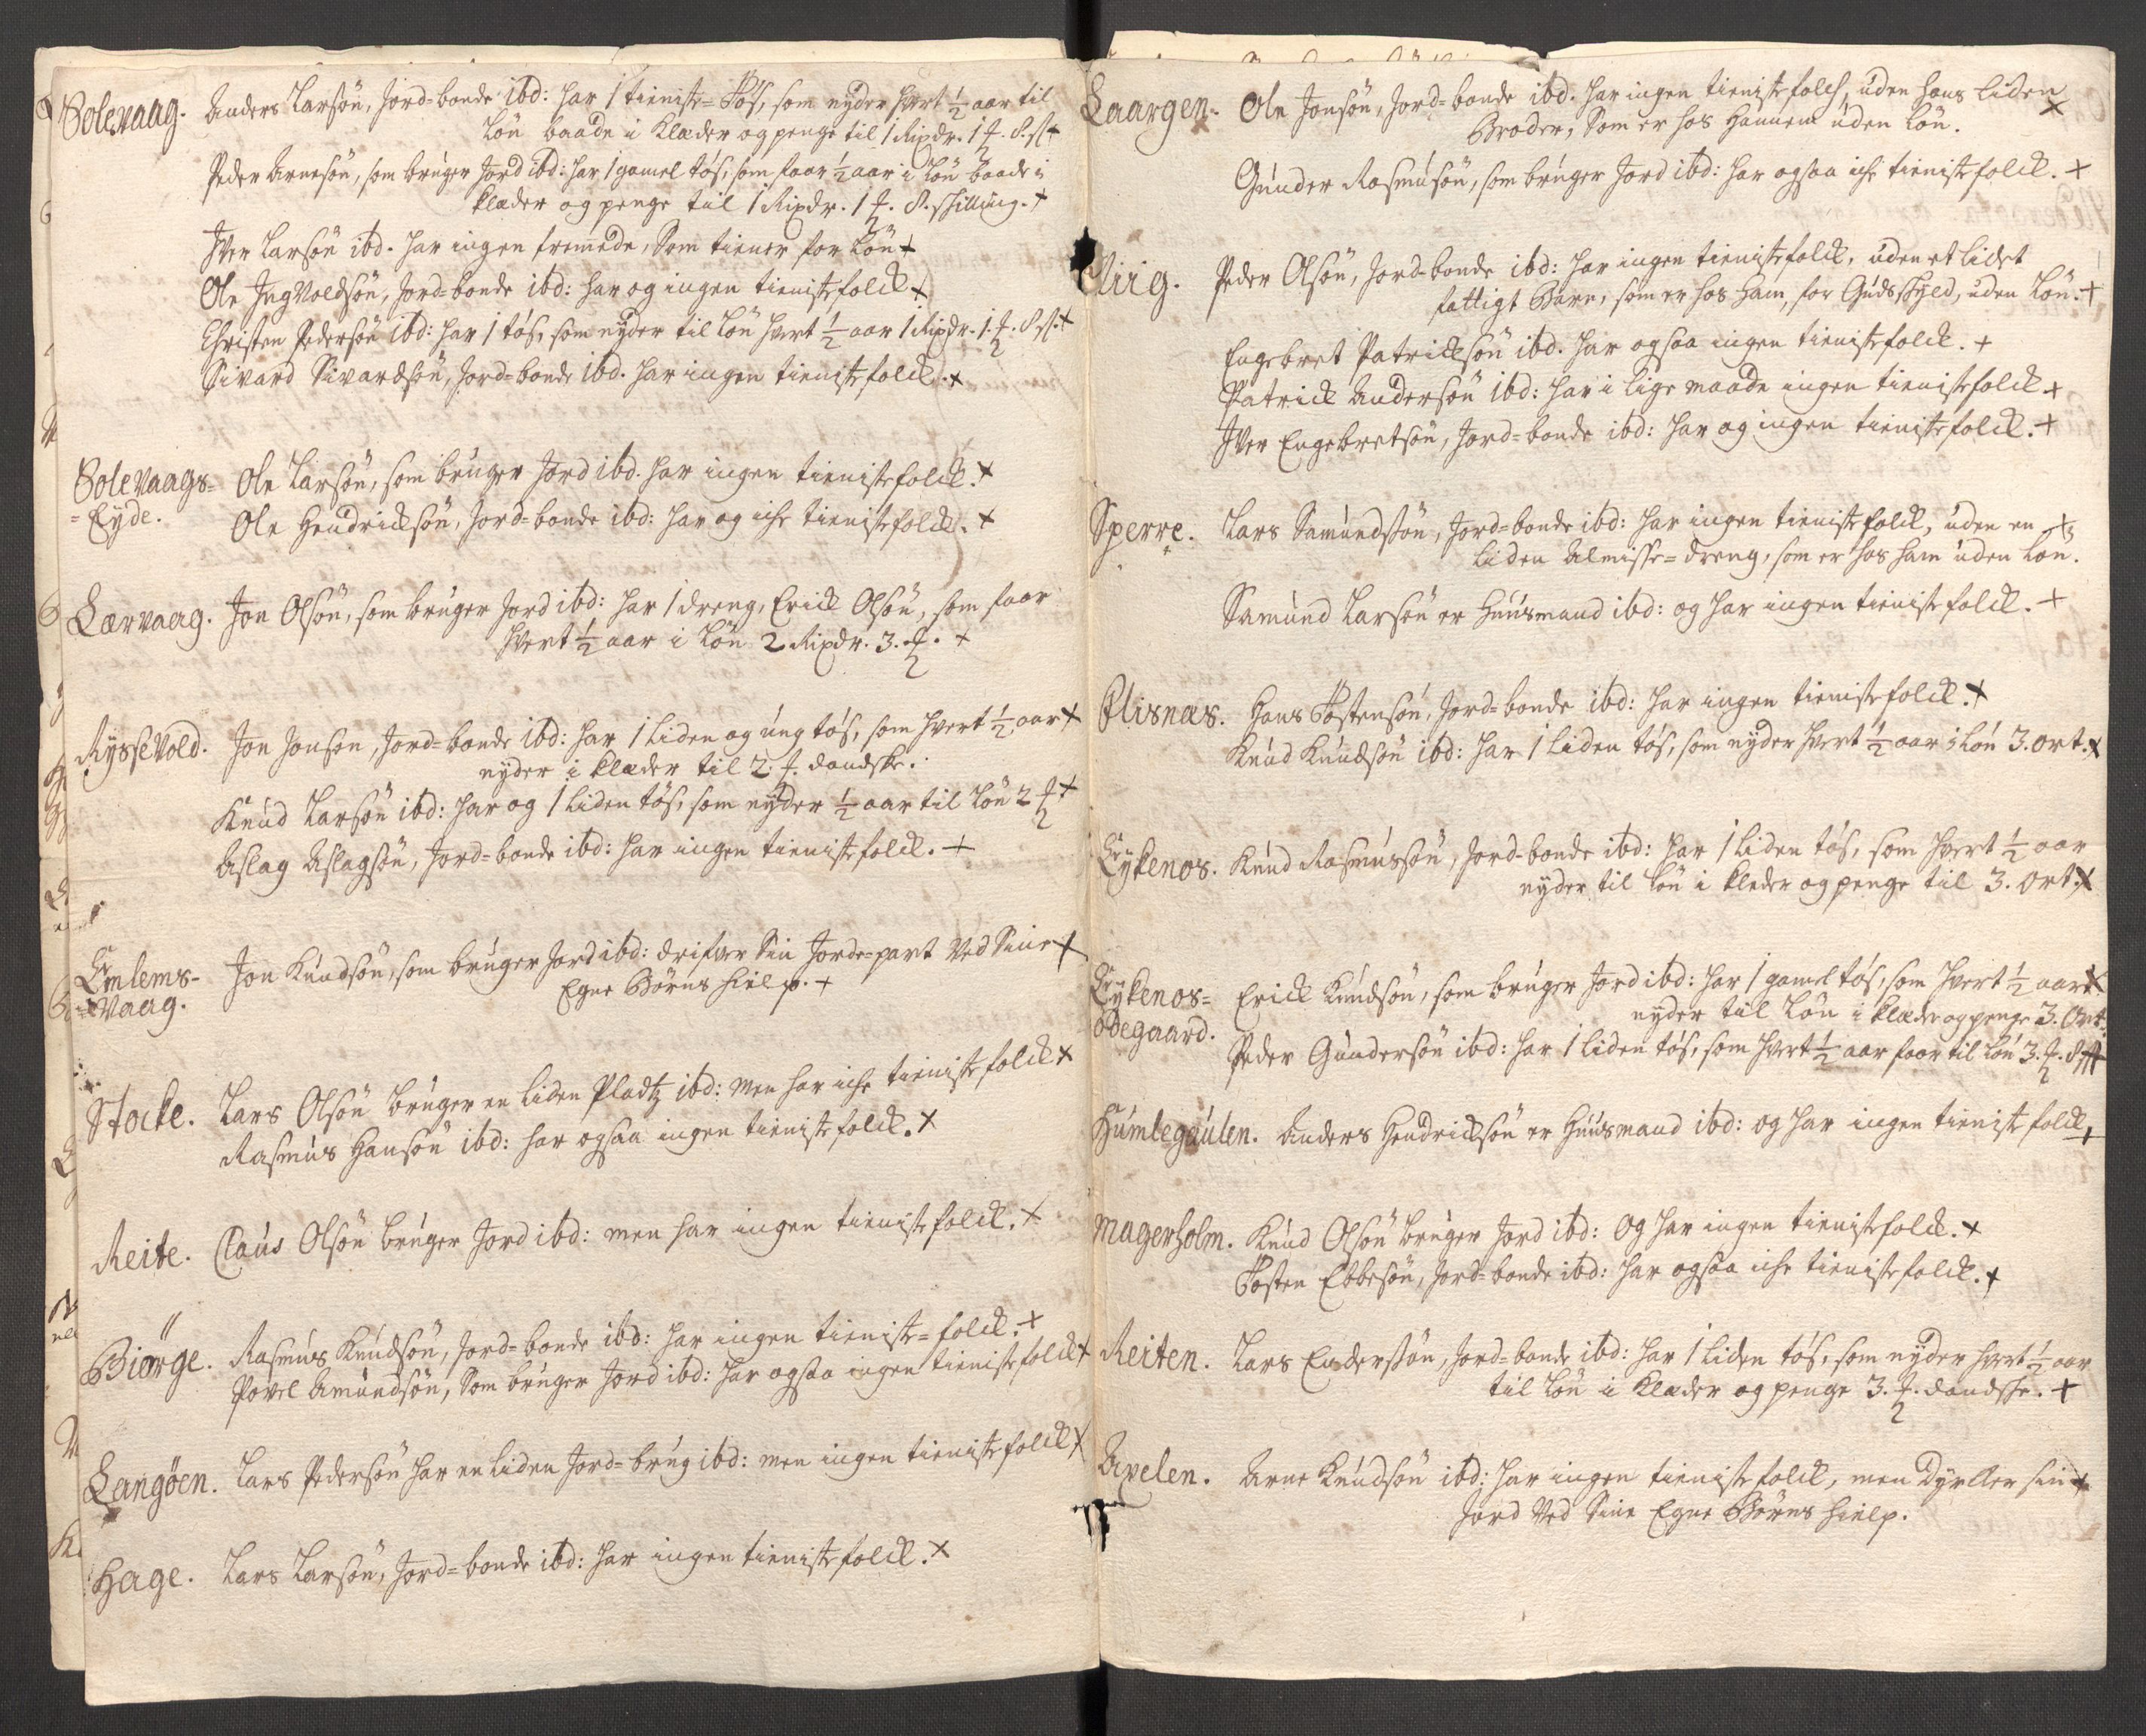 Solevaag. Anders Larsön, Jord=bonde ibd: har 1 tieniste=Tös, som nyder hvert ½ aar til
Lön baade i Klæder og penge til 1 Rixdr. 1 ʒ. 8. sk. +
Peder Arnesön, som brúger Jord ibd: har 1 gamel tös, som faar ½ aar i Lön baade i
klæder og penge til 1 Rixdr. 1 ʒ. 8. skilling. +
Iver Larsön ibd. har ingen fremede, Som tiener for Lön +
Ole IngVoldsön, Jord=bonde ibd: har og ingen tienistefolck +
Christen Pedersön ibd: har 1 tös, som nyder til Lön hvert ½ aar 1 Rixdr. 1. ʒ. 8 sk. +
Sivard Sivardsön, Jord=bonde ibd. har ingen tienistefolck. +
Solevaags= Ole Larsön, som brúger Jord ibd. har ingen tienistefolck. +
=Eyde. Ole Hendricksön, Jord=bonde ibd: har og iche tienistefolck. +
Lærvaag. Jon Olsön, som brúger Jord ibd: har 1 dreng, Erick Olsön, som faar
hvert ½ aar i Lön 2 Rixdr. 3. ʒ. +
RysseVold. Jon Jonsön, Jord=bonde ibd: har 1 Liden og úng tös, som hvert ½ aar +
nyder i klæder til 2. ʒ. dandske.
Knúd Larsön ibd: har og 1 Liden tös, som nyder ½ aar til Lön 2 ʒ +
Aslag Aslagsön, Jord=bonde ibd: har ingen tienistefolck. +
Emlems- Jon Knúdsön, som brúger Jord ibd: drifver Sin Jorde=part Ved Sine +
=Vaag. Egne Börns hielp. +
Stocke. Lars Olsön brúger en liden Pladtz ibd: men har iche tienistefolck +
Rasmús Hansön ibd: har ogsaa ingen tienistefolck. +
Reite. Claús Olsön brúger Jord ibd: men har ingen tienistefolck. +
Biörge. Rasmús Knúdsön, Jord=bonde ibd: har ingen tieniste=folck. +
Povel Amúndsön, Som brúger Jord ibd: har ogsaa ingen tienistefolck +
Langöen. Lars Pedersön har en liden Jord=brúg ibd: men ingen tienistefolck +
Hage. Lars Larsön, Jord=bonde ibd: har ingen tienistefolck. +
Laargen. Ole Jonsön, Jord=bonde ibd. har ingen tienistefolch, úden hans liden +
Broder, Som er hos Hannem úden Lön.
Gúnder Rasmúsön, som brúger Jord ibd: har ogsaa iche tienistefolck. +
Riig. Peder Olsön, Jord=bonde ibd: har ingen tienistefolck, úden et lidet
fattigt Barn, som er hos ham, for Gúds skyld, úden Lön. +
Engebret Patricksön ibd. har ogsaa ingen tienistefolck. +
Patrick Andersön ibd: har i lige maade ingen tienistefolck +
Iver Engebretsön, Jord=bonde ibd: har og ingen tienistefolck. +
Sperre. Lars Samúndsön, Jord=bonde ibd: har ingen tienistefolck, úden en +
liden Almisse=dreng, som er hos ham úden Lön.
Samúnd Larsön er Húúsmand ibd: og har ingen tienistefolck. +
Flisnæs. Hans Tostensön, Jord=bonde ibd: har ingen tienistefolck. +
Knúd Knúdsön ibd: har 1 Liden tös, som nyder hvert ½ aar i Lön 3. Ort. +
Eykenos. Knúd Rasmússön, Jord=bonde ibd: har 1 liden tös, som hvert ½ aar
nyder til Lön i kleder og penge til 3. Ort. +
Eykenos= Erick Knúdsön, som brúger Jord ibd: har 1 gamel tös, som hvert ½ aar +
ödegaard. nyder til Lön i klæde og penge 3. Ort.
Peder Gúndersön ibd: har 1 liden tös, som hvert ½ aar faar til Lön 3. ʒ. 8 sk +
Húmlegaúlen. Anders Hendricksön er Húúsmand ibd: og har ingen tienistefolck +
Magerholm. Knúd Olsön brúger Jord ibd: og har ingen tienistefolck. +
Tosten Ebbesön, Jord=bonde ibd: har ogsaa iche tienistefolck. +
Reiten. Lars Endersön, Jord=bonde ibd: har 1 liden tös, som nyder hvert ½ aar
til Lön i Klæder og penge 3. ʒ. dandske. +
Axelen. Arne Knúdsön ibd: har ingen tienistefolck, men dyrcker sin +
Jord Ved Sine Egne Börns hielp.